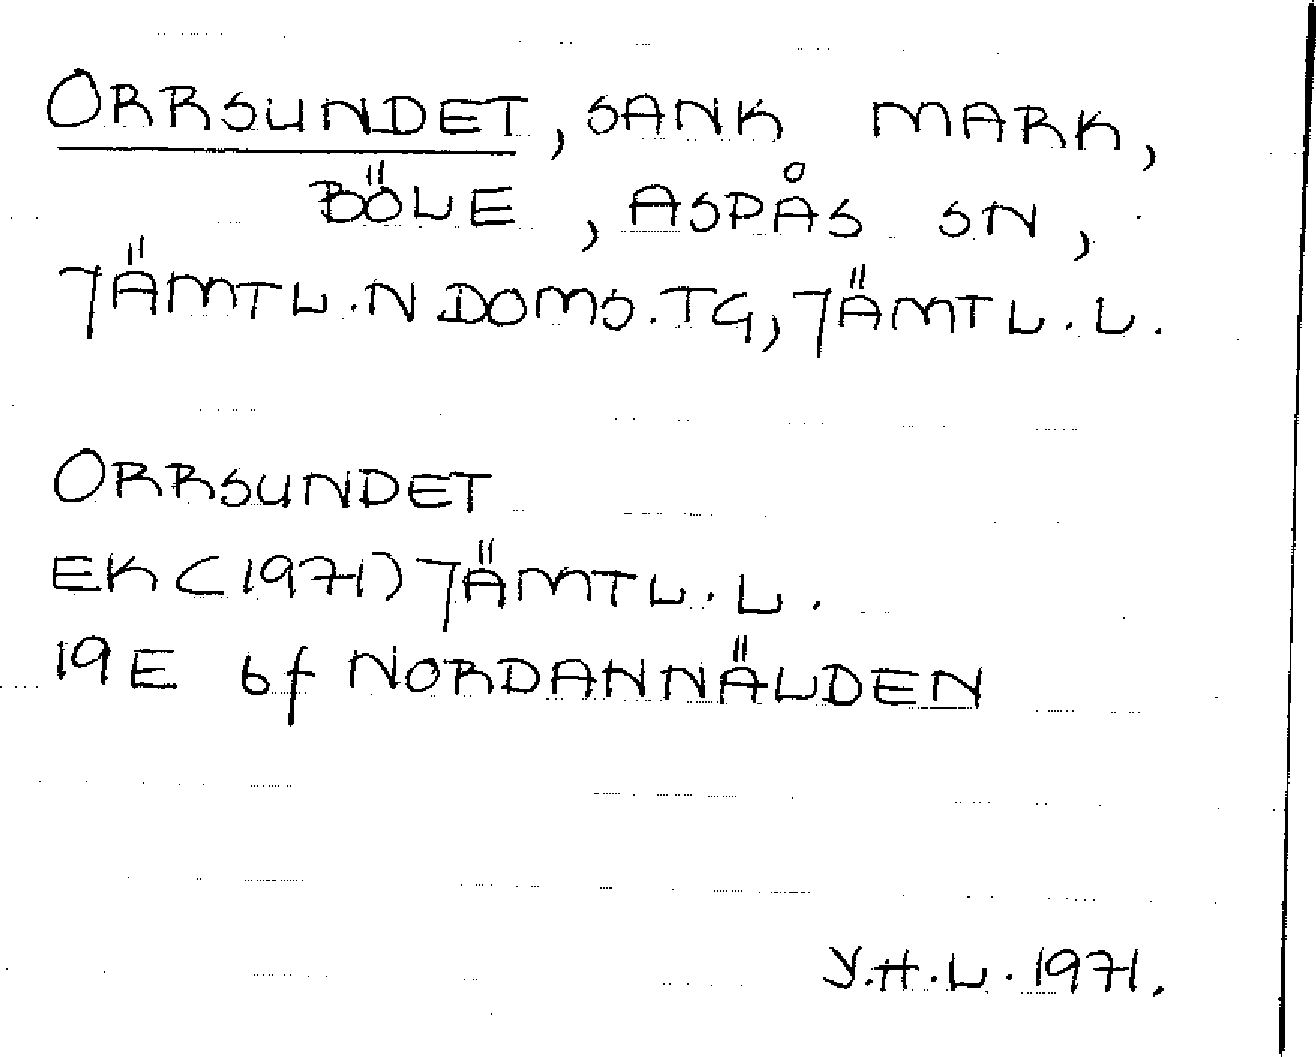 ORRSUNDET, SANK MARK,
BÖLE, ASPÅS SN,
JÄMTL.N DOMS.TG, JÄMTL.L.
ORRSUNDET
EK (1971) JÄMTL.L.
19E 6f NORDANNÄLDEN
Y.H.L. 1971.